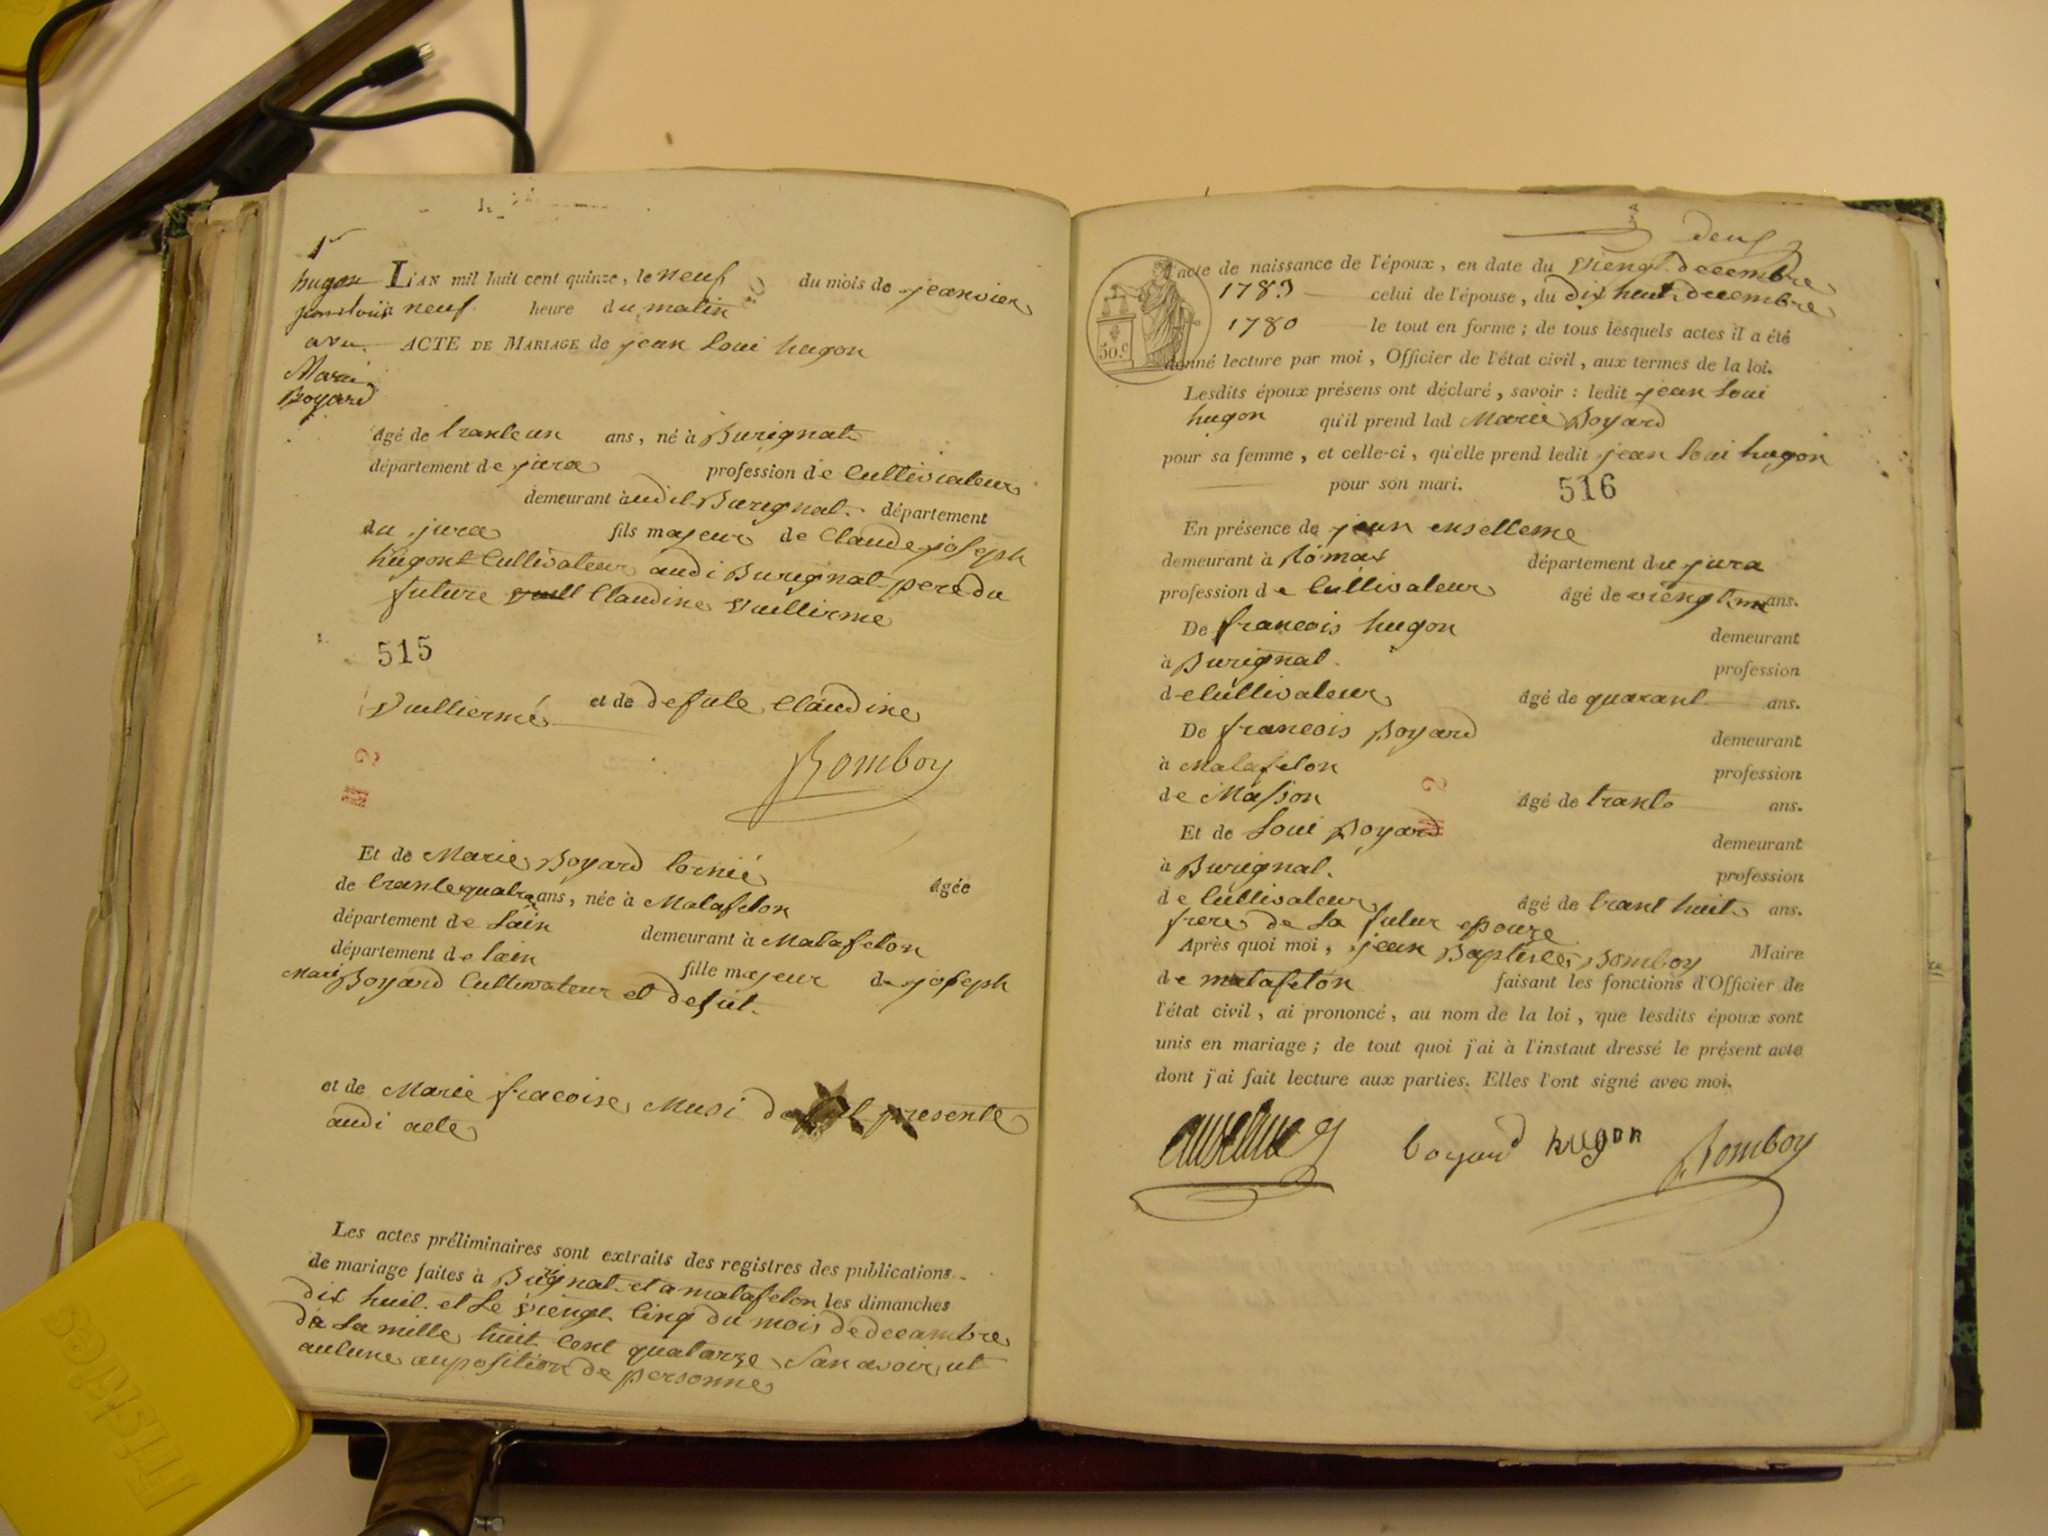 1er
hugon
jean louis
avec
Marie
Boyard
L'AN mil huit cent quinze, le neuf du mois de jeanvier
neuf heure du matin
ACTE DE MARIAGE de jean Loui hugon
âgé de tranteun ans, né à Burignat
département de jura profession de Cultivateur
demeurant à audit Burignat département
du jura fils majeur de Claude joseph
hugont Cultivateur audi Burignat pere du
future Claudine Vuillierme
515
Vuilliermé et de defute Claudine
Bomboy
Et de Marie Boyard Cornié âgée
de trantequatre ans, née à Matafelon
département de Lain demeurant à Matafelon
département de lain fille majeur de joseph
Marie Boyard Cultivateur et defut
et de Marie fracoise Musi presente
audi acte
Les actes préliminaires sont extraits des registres des publications
de mariage faites à Burignat et a matafelon les dimanches
dix huit et Le viengt Cinq du mois de decambre
da La mille huit Cent quatorze San avoir ut
aucune auposition de personne
deux
50.c
l'acte de naissance de l'époux, en date du viengt decembre
1783 celui de l'épouse, du dix heut decembre
1780 le tout en forme; de tous lesquels actes il a été
donné lecture par moi, Officier de l'état civil, aux termes de la loi.
Lesdits époux présens ont déclaré, savoir: ledit jean Loui
hugon qu'il prend lad Marie Boyard
pour sa femme, et celle-ci, qu'elle prend ledit jean Loui hugon
pour son mari. 516
En présence de jean enselleme
demeurant à Rómas département du jura
profession de Cultivateur âgé de ans.
De francois hugon demeurant
à Burignat profession
de Cultivateur âgé de quarant ans.
De francois Boyard demeurant
à Matafelon profession
de Masson âgé de trante ans.
Et de Loui Boyard demeurant
à Burignat profession
de Cultivateur âgé de trant huit ans.
frere de La futur epouze
Après quoi moi, jean Baptiste Bomboy Maire
de matafelon faisant les fonctions d'Officier de
l'état civil, ai prononcé, au nom de la loi, que lesdits époux sont
unis en mariage; de tout quoi j'ai à l'instaut dressé le présent acte
dont j'ai fait lecture aux parties. Elles l'ont signé avec moi.
anselme boyard hugon Bomboy